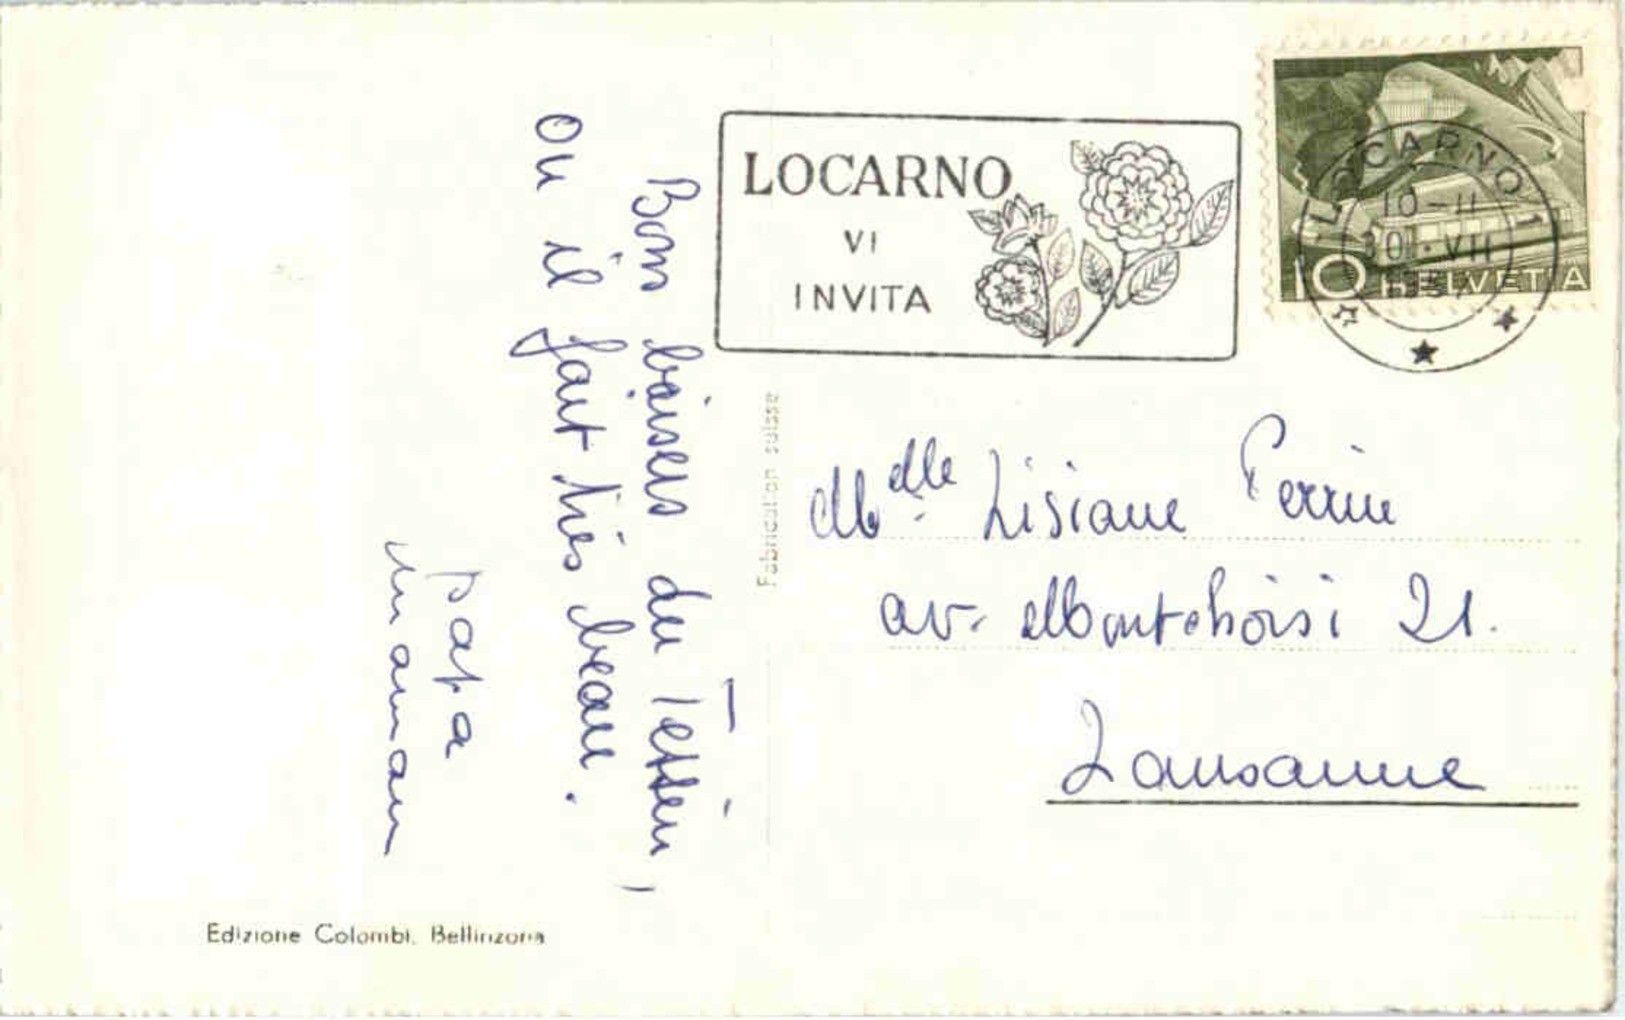 LOCARNO
VI
INVITA
LOCARNO 1
10-11
VII
10 HELVETIA
Bons baisers du Tessin,
ou il fait très beau.
papa
maman
Fabrication suisse
Mdlle. Lisiane Perrin
av. Montchoisi 21.
Lausanne
Edizione Colombi, Bellinzona